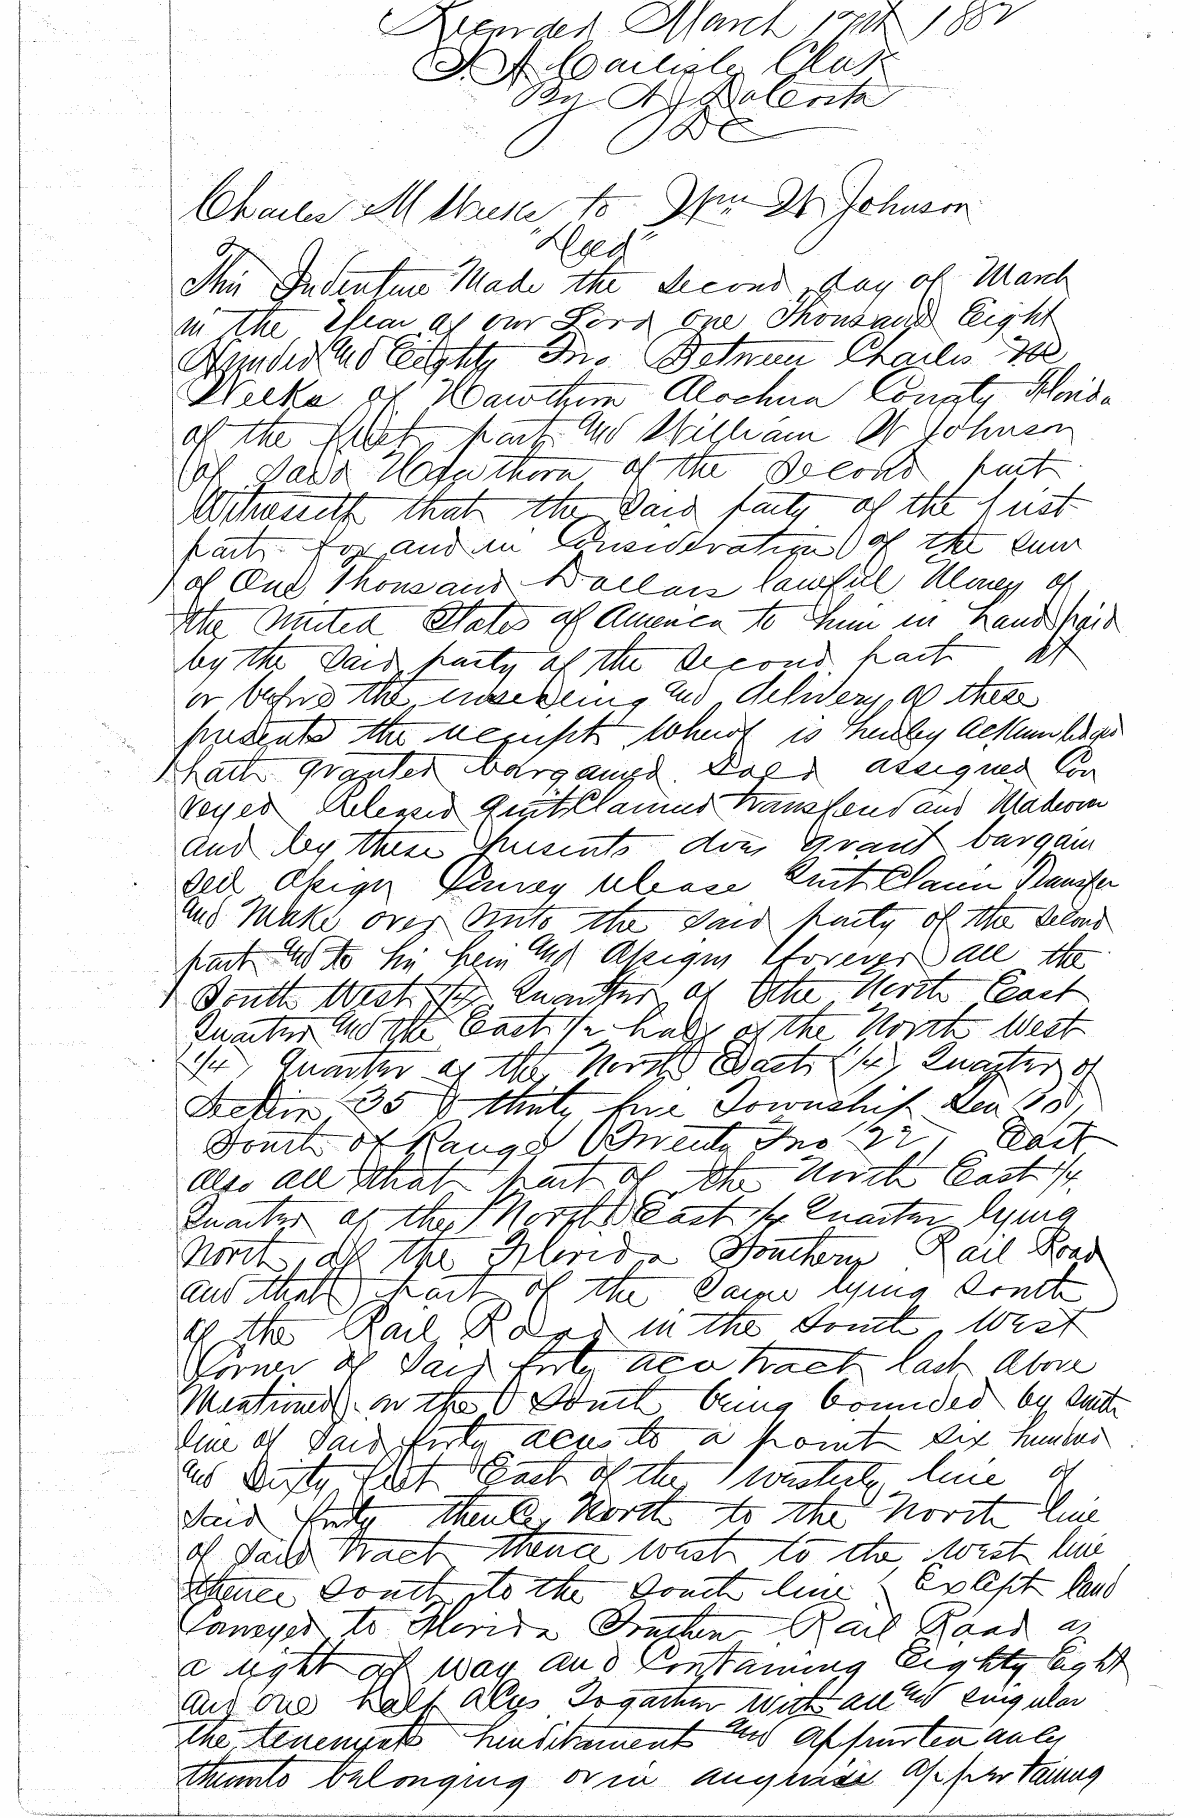 Recorded March 17th 1882
J A Carlisle Clerk
By A J DaCosta
DC
Charles M Weeks to Wm W Johnson
"Deed"
This Indenture Made the second day of March
in the Year of our Lord one Thousand Eight
Hundred and Eighty Two Between Charles M
Weeks of Hawthorn Alachua County Florida
of the first part and William W Johnson
of said Hawthorn of the second part
Witnesseth that the said party of the first
part for and in Consideration of the sum
of One Thousand Dollars lawful Money of
the United States of America to him in hand paid
by the said party of the second part at
or before the ensealing and delivery of these
presents the receipt whereof is hereby acknowledged
hath granted bargained Sold assigned Con
veyed Released QuitClaimed transfered and Madeover
and by these presents does grant bargain
sell assign Convey release QuitClaim Transfer
and Make over unto the said party of the second
part and to his heirs and assigns forever all the
South West (1/4) Quarter of the North East
Quarter and the East 1/2 half of the North West
(1/4) Quarter of the North East (1/4) Quarter of
Section 35 thirty five Township Ten 10,
South of Range (Twenty Two 22) East
also all that part of the North East 1/4
Quarter of the North East 1/4 Quarter lying
North of the Florida Southern Rail Road
and that part of the same lying South
of the Rail Road in the South West
Corner of said forty acre tract last above
Mentioned on the South being bounded by South
line of said forty acres to a point six hundred
and Sixty feet East of the westerly line of
said forty thence North to the North line
of said tract thence west to the west line
thence south to the south line Except land
Conveyed to Florida Southern Rail Road as
a right of way and Containing Eighty Eight
and one half acres Together with all and singular
the tenements hereditaments and appurtenances
thereunto belonging or in anywise appertaining